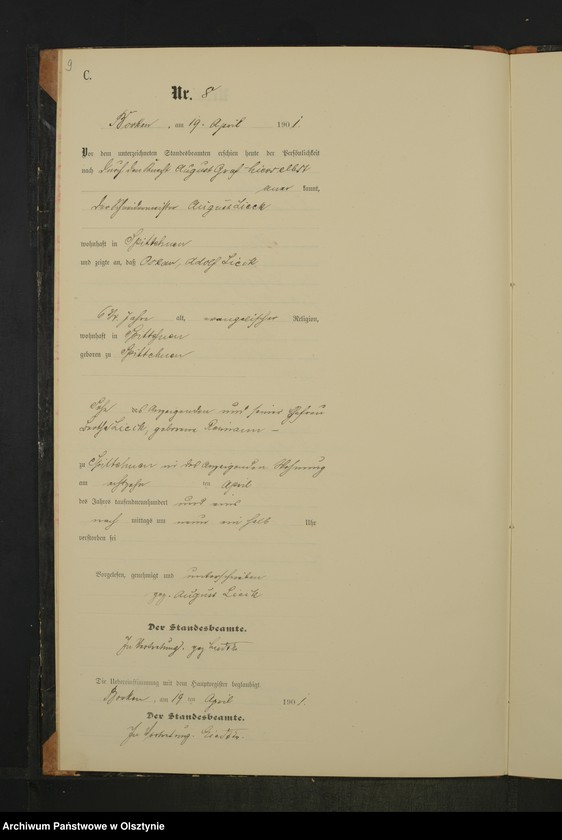 9
C.
Nr. 8
Borken, am 19. April 1901.
Vor dem unterzeichneten Standesbeamten erschien heute der Persönlichkeit
nach durch den Knecht August Graf hierselbst
aner kannt,
der August Lieck
wohnhaft in Spittehnen
und zeigte an, daß Oskar, Adolf Lieck,
6 3/4 Jahre alt, evangelischer Religion,
wohnhaft in Spittehnen
geboren zu Spittehnen
Sohn des Anzeigenden und seiner Ehefrau
Lieck, geborene
zu Spittehnen in des Anzeigenden Wohnung
am achtzehn ten April
des Jahres tausendneunhundert und eins
nach mittags um neun ein halb Uhr
verstorben sei
Vorgelesen, genehmigt und unterschrieben
gez. August Lieck
Der Standesbeamte.
In Vertretung. gez.
Die Uebereinstimmung mit dem Hauptregister beglaubigt
Borken, am 19 ten April 1901.
Der Standesbeamte.
In Vertretung.
Archiwum Państwowe w Olsztynie